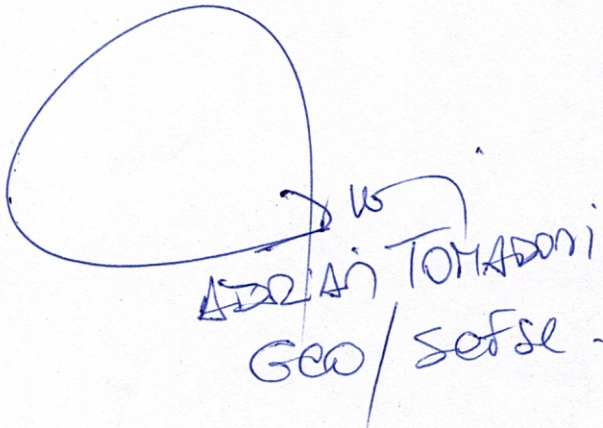 ADRIAN TOMADONI
GCO / SOFSE -